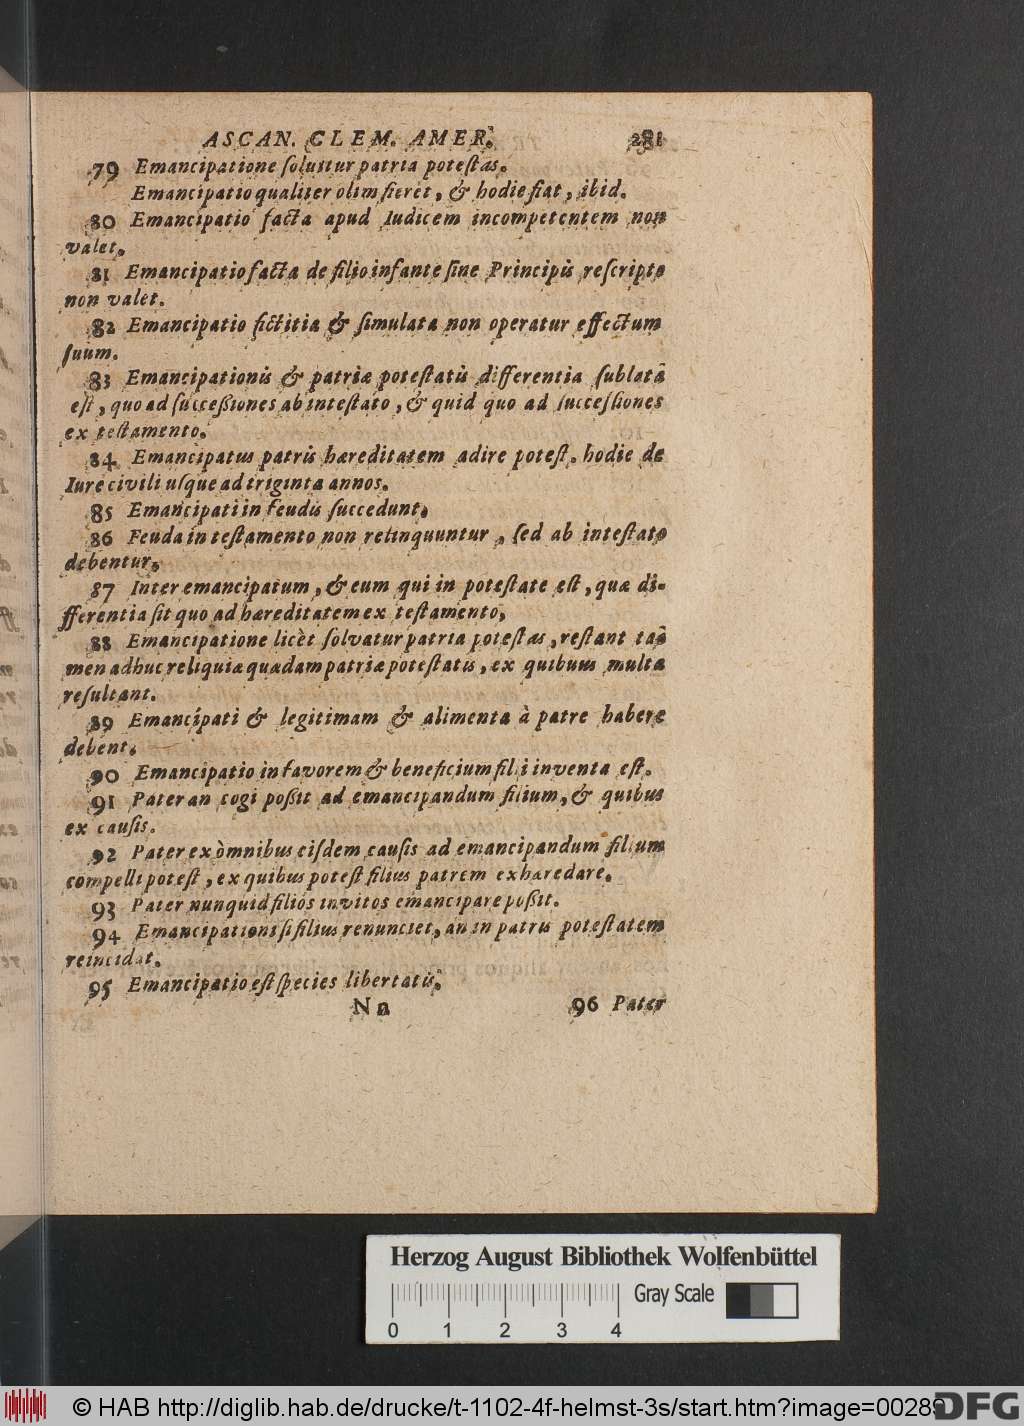 ASCAN. CLEM. AMER. 281
79 Emancipatione soluitur patria potestas.
Emancipatio qualiter olim fieret, & hodie fiat, ibid.
80 Emancipatio facta apud Iudicem incompetentem non
valet.
81 Emancipatio facta de filio infante sine Principis rescripto
non valet.
82 Emancipatio fictitia & simulata non operatur effectum
suum.
83 Emancipationis & patriæ potestatis differentia sublata
est, quo ad successiones ab intestato, & quid quo ad successiones
ex testamento.
84 Emancipatus patris hæreditatem adire potest. hodie de
Iure civili usque ad triginta annos.
85 Emancipati in feudis succedunt.
86 Feuda in testamento non relinquuntur, sed ab intestato
debentur.
87 Inter emancipatum, & eum qui in potestate est, quæ di-
fferentia sit quo ad hæreditatem ex testamento,
88 Emancipatione licèt solvatur patria potestas, restant ta-
men adhuc reliquiæ quædam patriæ potestatis, ex quibus multa
resultant.
89 Emancipati & legitimam & alimenta à patre habere
debent.
90 Emancipatio in favorem & beneficium filii inventa est.
91 Pater an cogi possit ad emancipandum filium, & quibus
ex causis.
92 Pater ex omnibus eisdem causis ad emancipandum filium
compelli potest, ex quibus potest filius patrem exhæredare.
93 Pater nunquid filios invitos emancipare possit.
94 Emancipationi si filius renunciet, an in patris potestatem
reincidat.
95 Emancipatio est species libertatis.
Nn 96 Pater
Herzog August Bibliothek Wolfenbüttel
Gray Scale
0 1 2 3 4
© HAB http://diglib.hab.de/drucke/t-1102-4f-helmst-3s/start.htm?image=00289
DFG